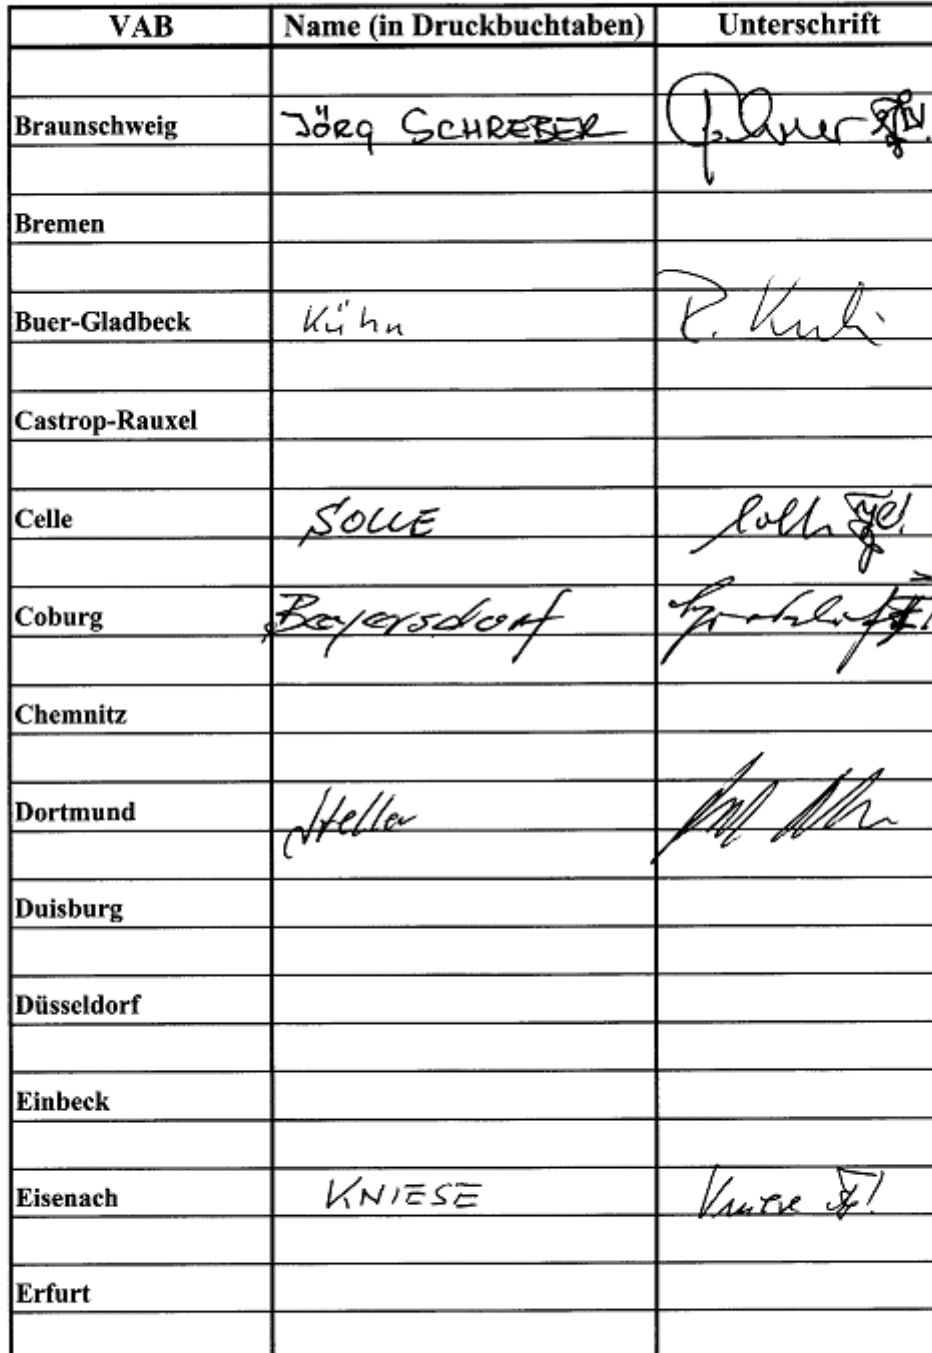 VAB Name (in Druckbuchtaben) Unterschrift
Braunschweig JÖRG SCHREBER
Bremen
Buer-Gladbeck Kühn R. Kuhn
Castrop-Rauxel
Celle SOLLE
Coburg Beyersdorf
Chemnitz
Dortmund Steller
Duisburg
Düsseldorf
Einbeck
Eisenach KNIESE Kniese
Erfurt